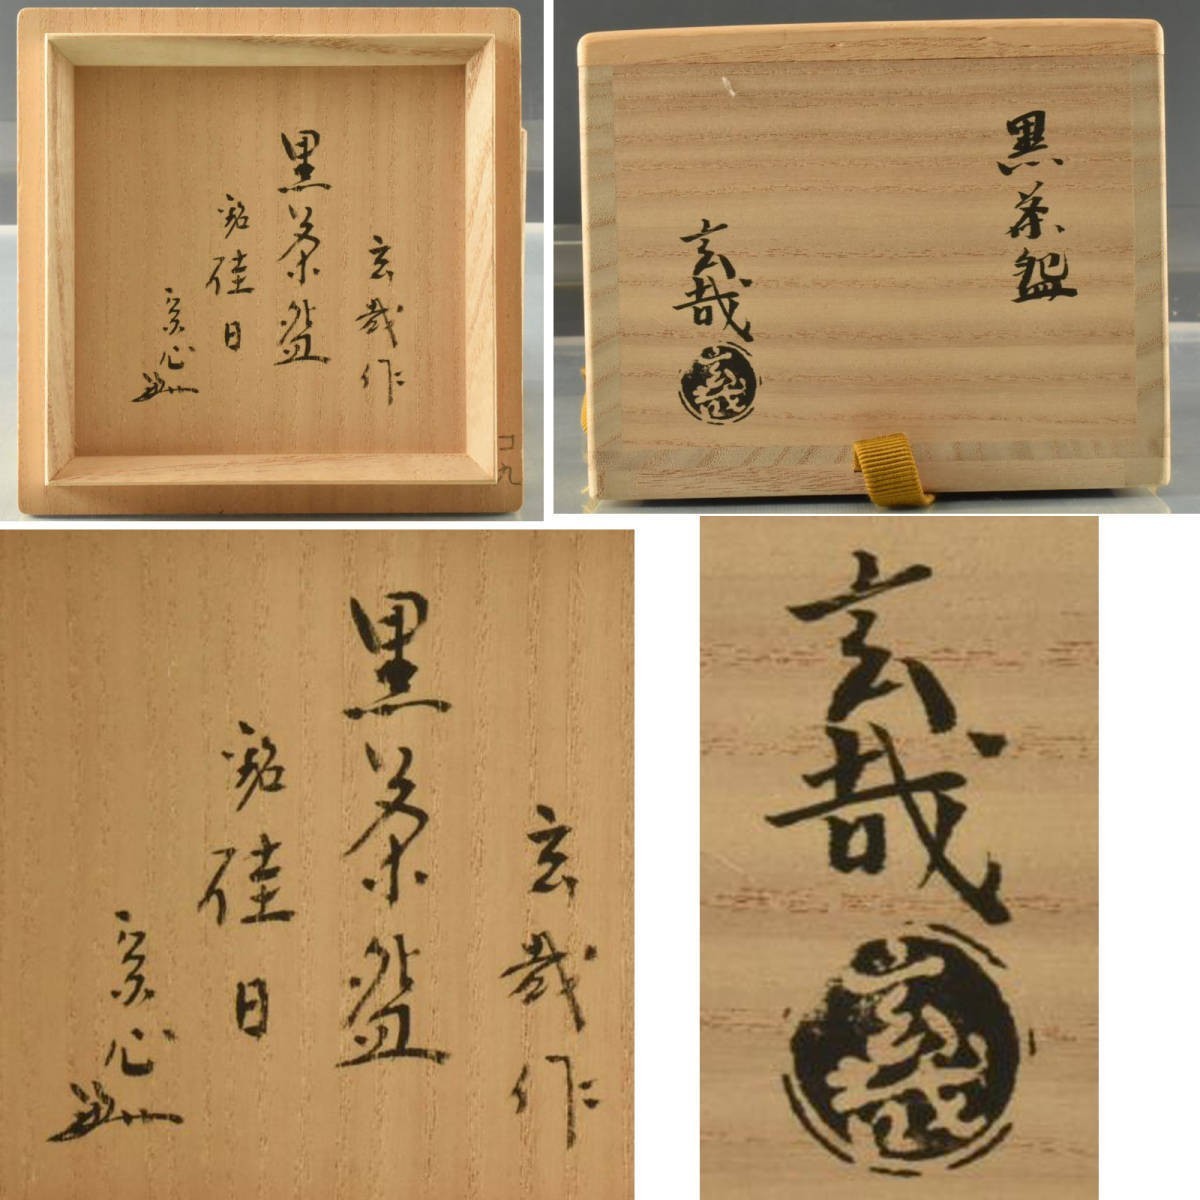 玄哉作
黒茶盌
銘 佳日
宗心
コ九
黒茶盌
玄哉
玄哉
玄哉作
黒茶盌
銘 佳日
宗心
玄哉
玄哉